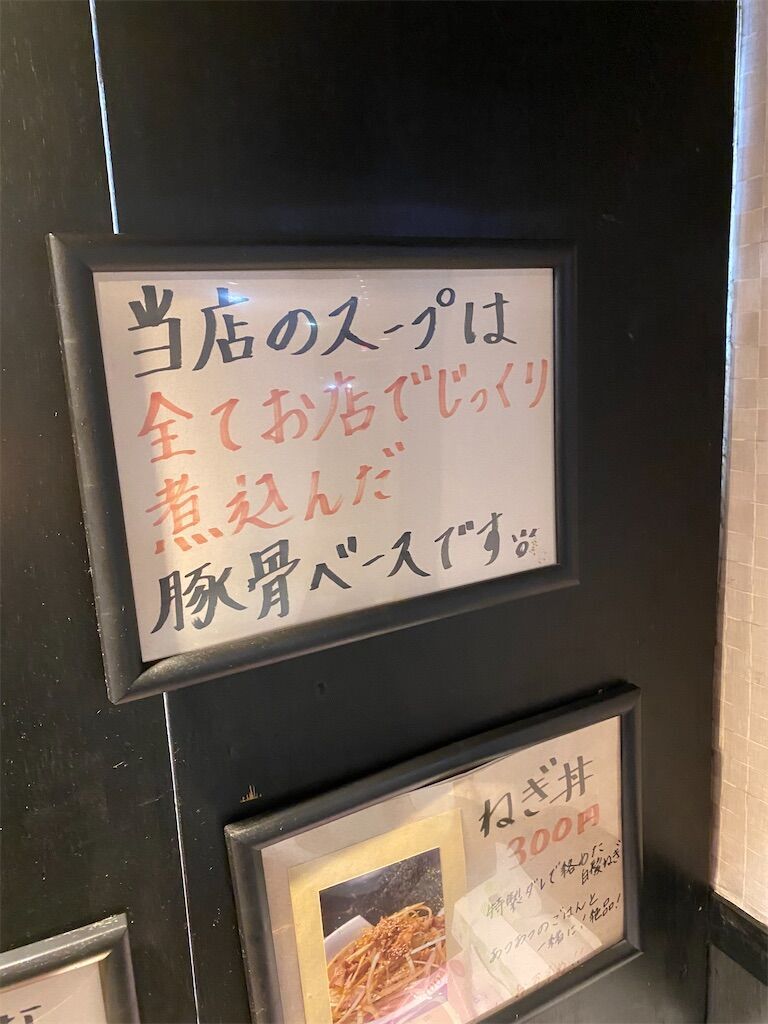 当店のスープは
全てお店でじっくり
煮込んだ
豚骨ベースです
ねぎ丼
300円
特製ダレで絡めた
白髪ねぎ
あつあつのごはんと
一緒に!絶品!